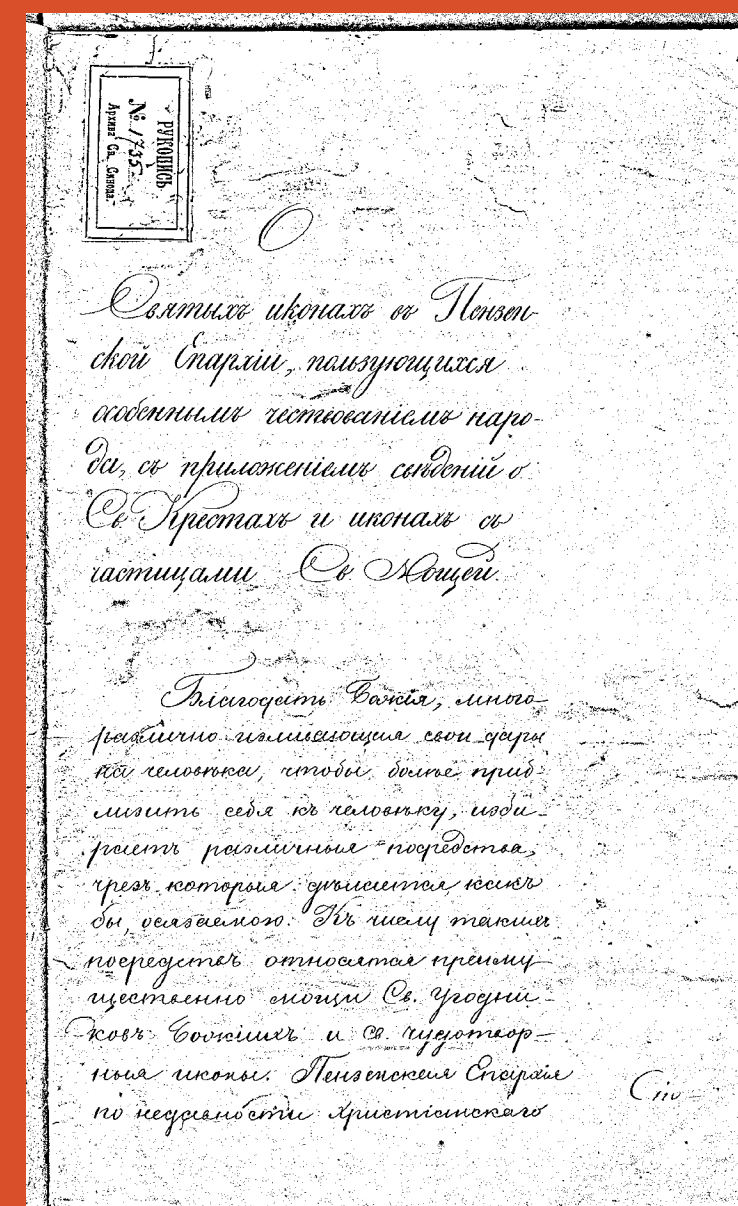 РУКОПИСЬ
№ 1735
Архива Св. Синода.
О
Святыхъ иконахъ въ Пензен-
ской Епархіи, пользующихся
особеннымъ чествованіемъ наро-
да, съ приложеніемъ свѣдѣній о
Св Крестахъ и иконахъ съ
частицами Св Мощей.
Благодать Божія, много
различно изливающая свои дары
на человѣка, чтобы болѣе приб
лизить себя къ человѣку, изби-
раетъ различныя посредства,
чрезъ которыя дѣлается какъ
бы осязаемою. Къ числу такихъ
посредствъ относятся преиму-
щественно мощи Св. Угодни-
ковъ Божіихъ и св. чудотвор-
ныя иконы. Пензенская Епархія
по недавности христіанскаго